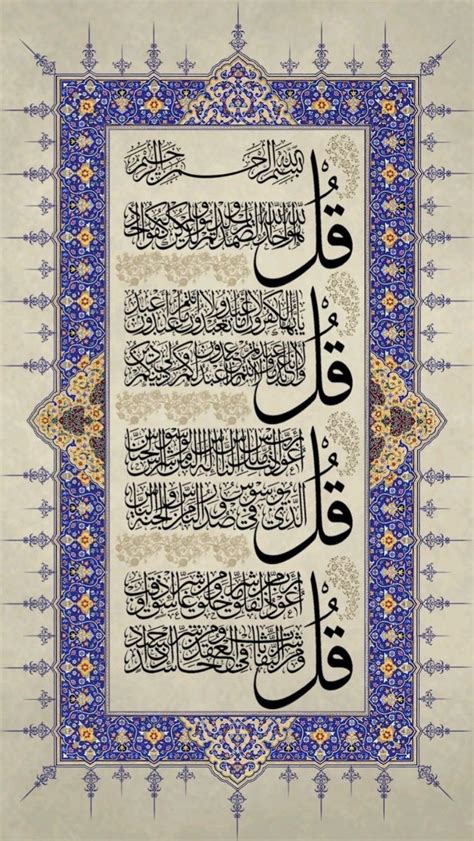 بسم الله الرحمن الرحيم
قل هو الله أحد الله الصمد لم يلد ولم يولد ولم يكن له كفوا أحد
قل يا أيها الكافرون لا أعبد ما تعبدون ولا أنتم عابدون ما أعبد
ولا أنا عابد ما عبدتم ولا أنتم عابدون ما أعبد لكم دينكم ولي دين
قل أعوذ برب الناس ملك الناس إله الناس من شر الوسواس الخناس
الذي يوسوس في صدور الناس من الجنة والناس
قل أعوذ برب الفلق من شر ما خلق ومن شر غاسق إذا وقب
ومن شر النفاثات في العقد ومن شر حاسد إذا حسد